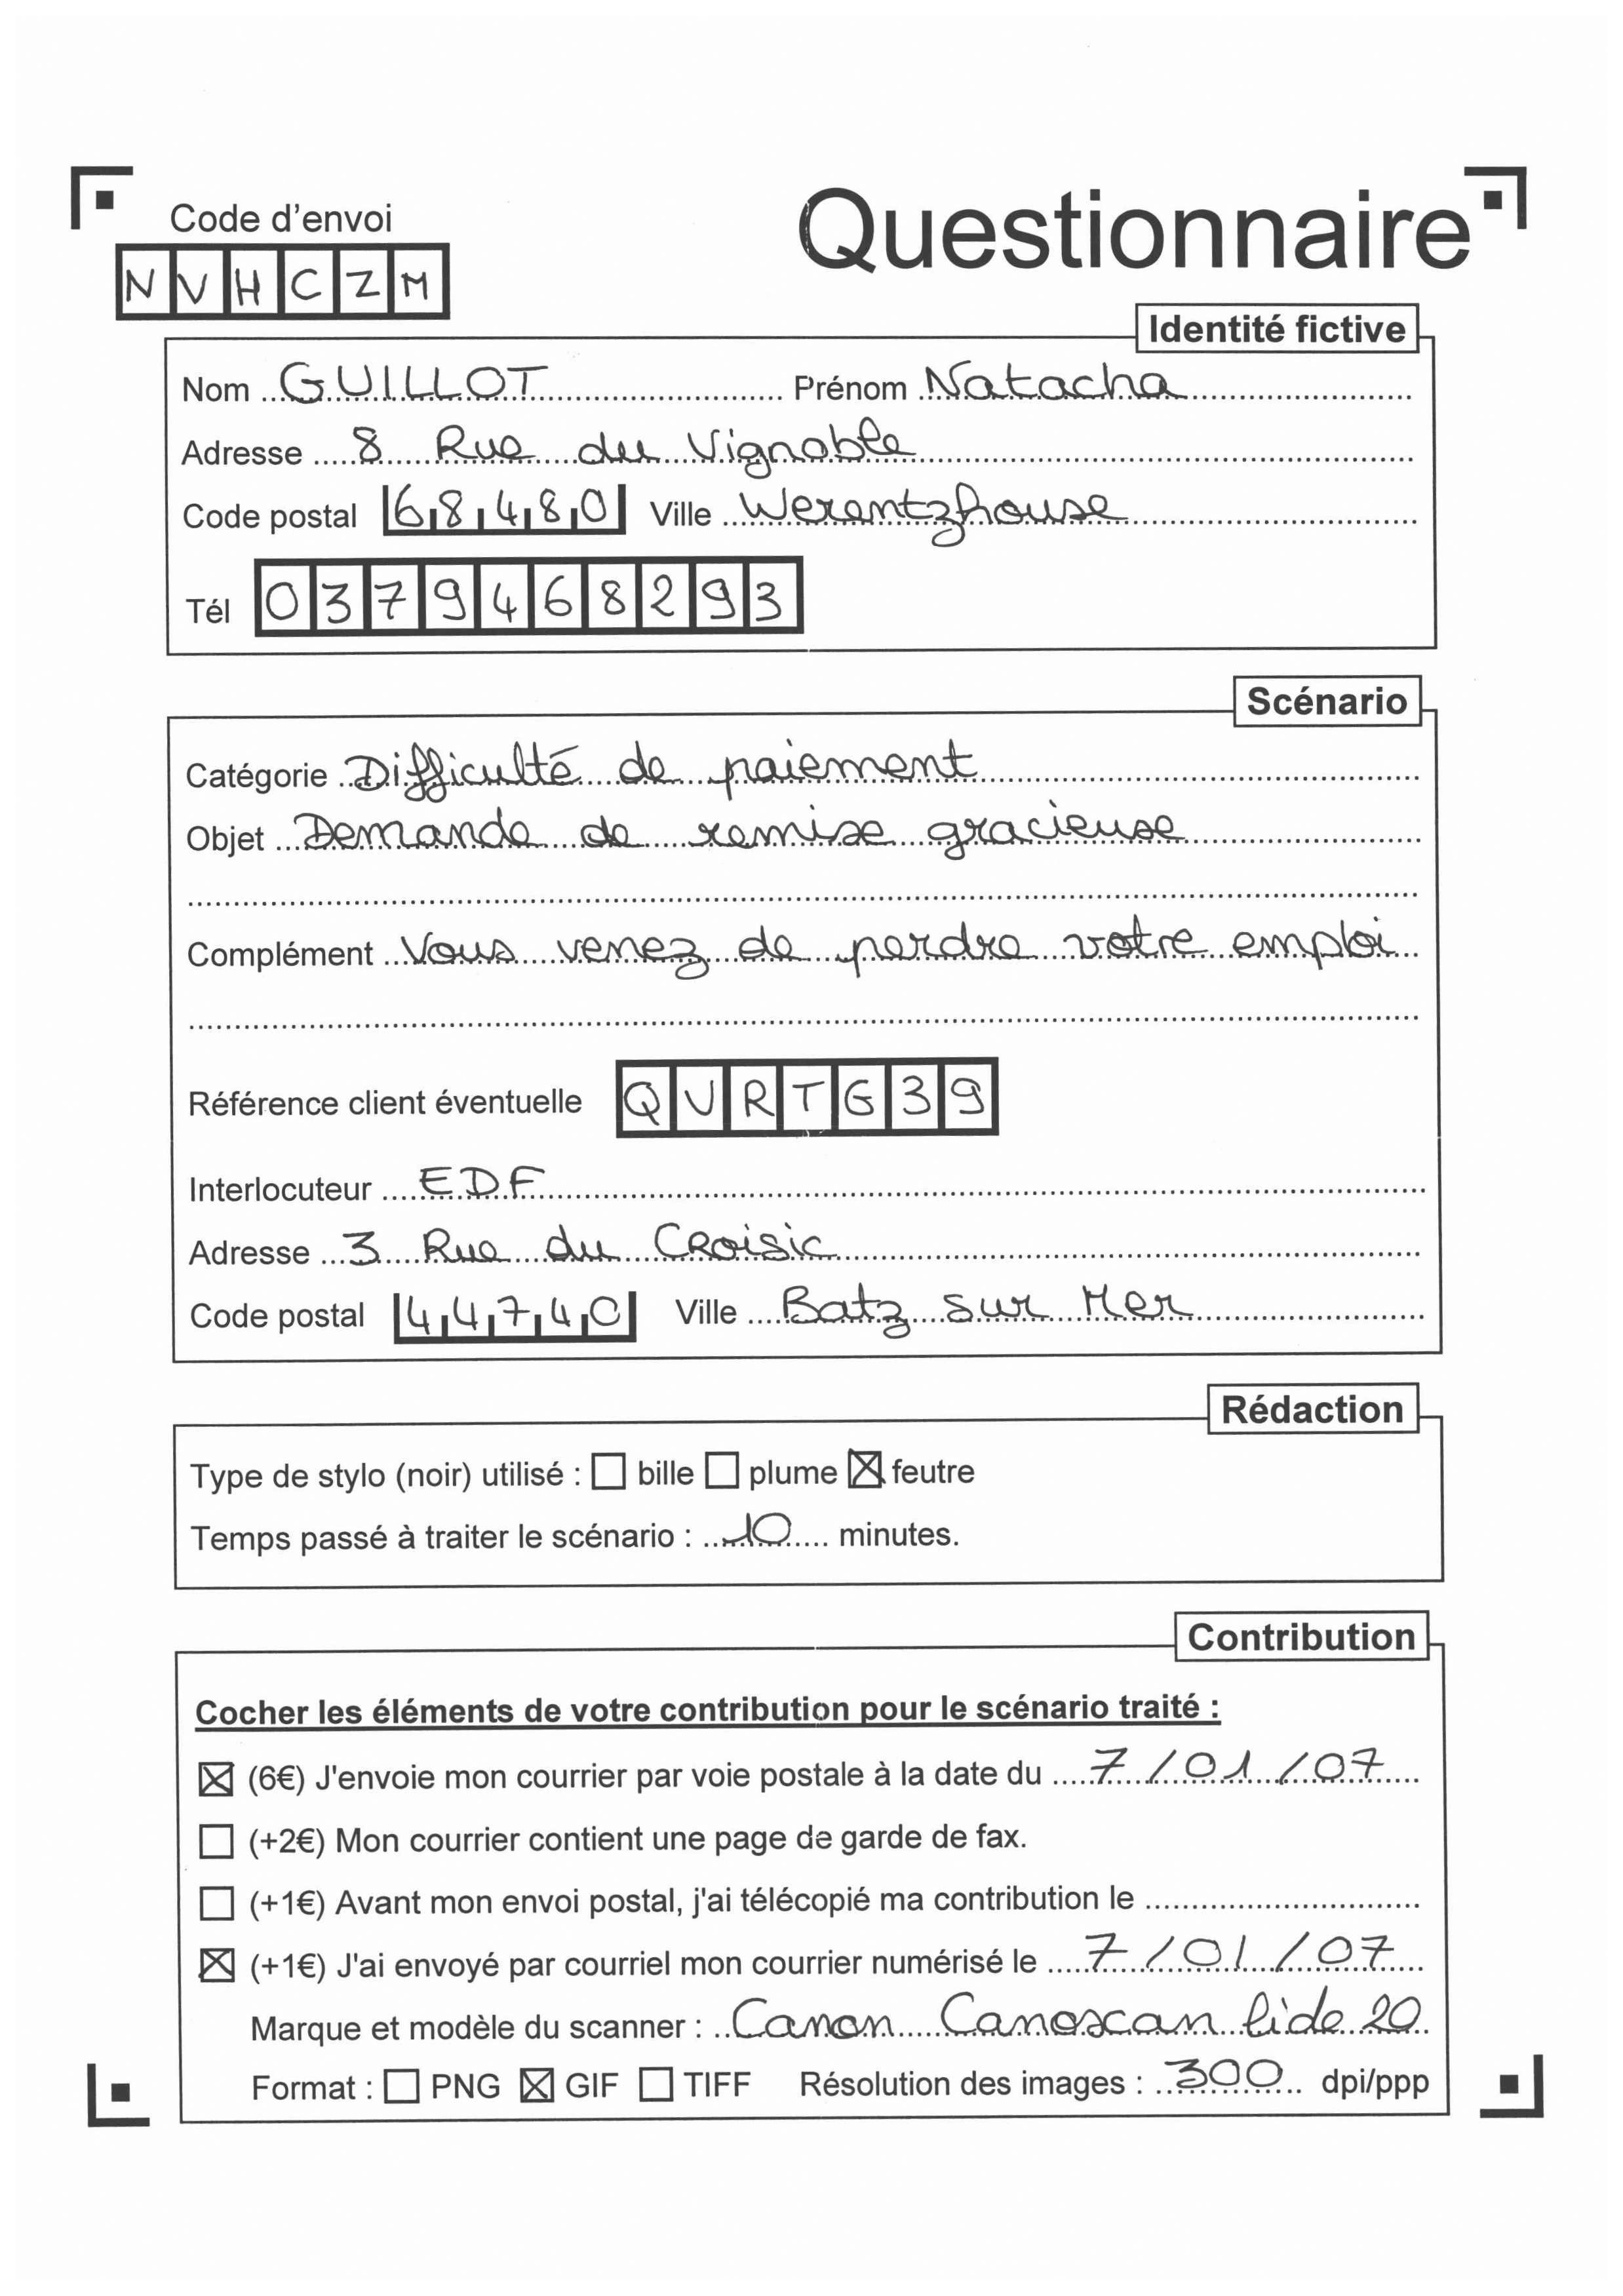 Code d'envoi
Questionnaire
NVHCZM
Identité fictive
Nom GUILLOT Prénom Natacha
Adresse 8 Rue du Vignoble
Code postal 68480 Ville Werentzhouse
Tél 0379468293
Scénario
Catégorie Difficulté de paiement
Objet Demande de remise gracieuse
Complément Vous venez de perdre votre emploi
Référence client éventuelle QVRTG39
Interlocuteur EDF
Adresse 3 Rue du Croisic
Code postal 44740 Ville Batz sur Mer
Rédaction
Type de stylo (noir) utilisé : ☐ bille ☐ plume ☒ feutre
Temps passé à traiter le scénario : 10 minutes.
Contribution
Cocher les éléments de votre contribution pour le scénario traité :
☒ (6€) J'envoie mon courrier par voie postale à la date du 7/01/07
☐ (+2€) Mon courrier contient une page de garde de fax.
☐ (+1€) Avant mon envoi postal, j'ai télécopié ma contribution le
☒ (+1€) J'ai envoyé par courriel mon courrier numérisé le 7/01/07
Marque et modèle du scanner : Canon Canoscan lide 20
Format : ☐ PNG ☒ GIF ☐ TIFF Résolution des images : 300 dpi/ppp